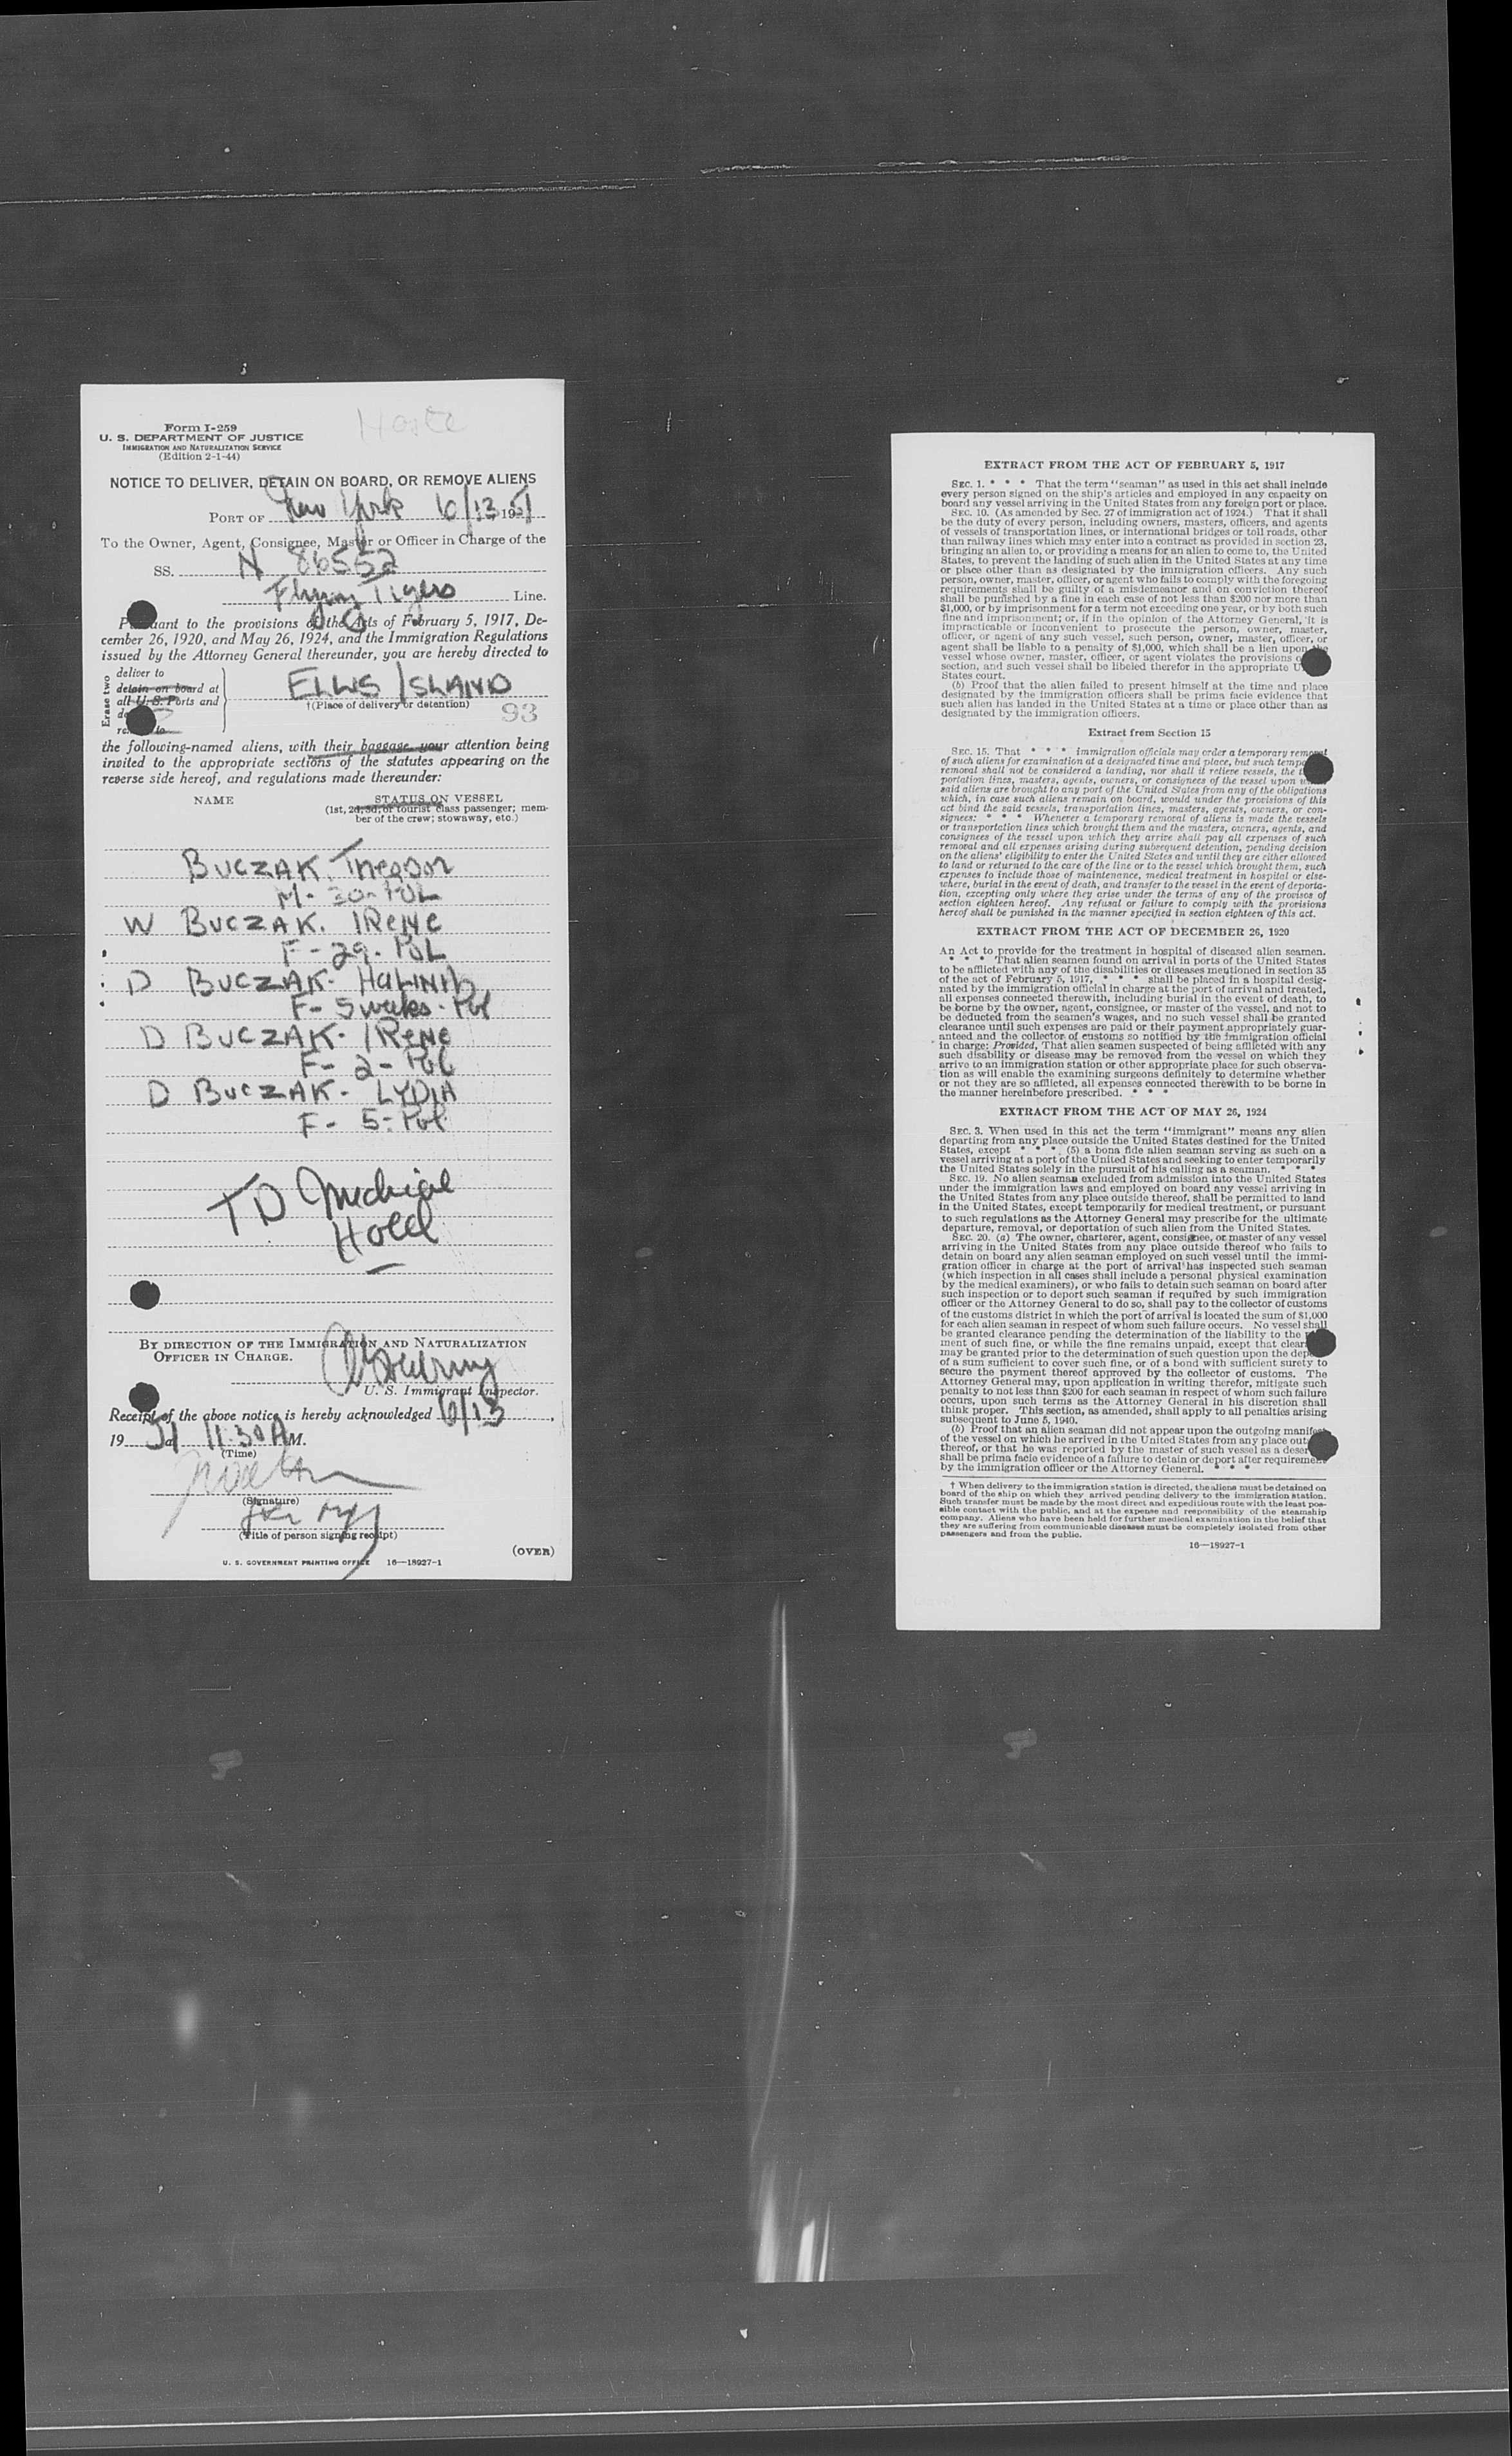 Form I-259
U. S. DEPARTMENT OF JUSTICE
IMMIGRATION AND NATURALIZATION SERVICE
(Edition 2-1-44)
NOTICE TO DELIVER, DETAIN ON BOARD, OR REMOVE ALIENS
PORT OF New York 6/13 1951
To the Owner, Agent, Consignee, Master or Officer in Charge of the
SS. N 86552
Flying Tigers Line.
Pursuant to the provisions of the Acts of February 5, 1917, De-
cember 26, 1920, and May 26, 1924, and the Immigration Regulations
issued by the Attorney General thereunder, you are hereby directed to
Erase two
deliver to
detain on board at
all U.S. Ports and
ELLIS ISLAND
†(Place of delivery or detention)
93
the following-named aliens, with their baggage, your attention being
invited to the appropriate sections of the statutes appearing on the
reverse side hereof, and regulations made thereunder:
NAME
STATUS ON VESSEL
(1st, 2d, 3d, or tourist class passenger; mem-
ber of the crew; stowaway, etc.)
BUCZAK, Theodor
M- 30- POL
W BUCZAK. IRENE
F - 29. POL
D BUCZAK- HALINA
F- 5 weeks - Pol
D BUCZAK- IRENE
F- 2 - Pol
D BUCZAK- LYDIA
F- 5- Pol
TD Medical
Hold
BY DIRECTION OF THE IMMIGRATION AND NATURALIZATION
OFFICER IN CHARGE.
U. S. Immigrant Inspector.
Receipt of the above notice is hereby acknowledged 6/13,
19 51 at 11:30 A M.
(Time)
(Signature)
(Title of person signing receipt)
(OVER)
U. S. GOVERNMENT PRINTING OFFICE 16—18927-1
EXTRACT FROM THE ACT OF FEBRUARY 5, 1917
SEC. 1. * * * That the term "seaman" as used in this act shall include
every person signed on the ship's articles and employed in any capacity on
board any vessel arriving in the United States from any foreign port or place.
SEC. 10. (As amended by Sec. 27 of immigration act of 1924.) That it shall
be the duty of every person, including owners, masters, officers, and agents
of vessels of transportation lines, or international bridges or toll roads, other
than railway lines which may enter into a contract as provided in section 23,
bringing an alien to, or providing a means for an alien to come to, the United
States, to prevent the landing of such alien in the United States at any time
or place other than as designated by the immigration officers. Any such
person, owner, master, officer, or agent who fails to comply with the foregoing
requirements shall be guilty of a misdemeanor and on conviction thereof
shall be punished by a fine in each case of not less than $200 nor more than
$1,000, or by imprisonment for a term not exceeding one year, or by both such
fine and imprisonment; or, if in the opinion of the Attorney General, it is
impracticable or inconvenient to prosecute the person, owner, master,
officer, or agent of any such vessel, such person, owner, master, officer, or
agent shall be liable to a penalty of $1,000, which shall be a lien upon the
vessel whose owner, master, officer, or agent violates the provisions of
section, and such vessel shall be libeled therefor in the appropriate U.
States court.
(b) Proof that the alien failed to present himself at the time and place
designated by the immigration officers shall be prima facie evidence that
such alien has landed in the United States at a time or place other than as
designated by the immigration officers.
Extract from Section 15
SEC. 15. That * * * immigration officials may order a temporary removal
of such aliens for examination at a designated time and place, but such temporary
removal shall not be considered a landing, nor shall it relieve vessels, the trans-
portation lines, masters, agents, owners, or consignees of the vessel upon which
said aliens are brought to any port of the United States from any of the obligations
which, in case such aliens remain on board, would under the provisions of this
act bind the said vessels, transportation lines, masters, agents, owners, or con-
signees: * * * Whenever a temporary removal of aliens is made the vessels
or transportation lines which brought them and the masters, owners, agents, and
consignees of the vessel upon which they arrive shall pay all expenses of such
removal and all expenses arising during subsequent detention, pending decision
on the aliens' eligibility to enter the United States and until they are either allowed
to land or returned to the care of the line or to the vessel which brought them, such
expenses to include those of maintenance, medical treatment in hospital or else-
where, burial in the event of death, and transfer to the vessel in the event of deporta-
tion, excepting only where they arise under the terms of any of the provisos of
section eighteen hereof. Any refusal or failure to comply with the provisions
hereof shall be punished in the manner specified in section eighteen of this act.
EXTRACT FROM THE ACT OF DECEMBER 26, 1920
An Act to provide for the treatment in hospital of diseased alien seamen.
* * * That alien seamen found on arrival in ports of the United States
to be afflicted with any of the disabilities or diseases mentioned in section 35
of the act of February 5, 1917, * * * shall be placed in a hospital desig-
nated by the immigration official in charge at the port of arrival and treated,
all expenses connected therewith, including burial in the event of death, to
be borne by the owner, agent, consignee, or master of the vessel, and not to
be deducted from the seamen's wages, and no such vessel shall be granted
clearance until such expenses are paid or their payment appropriately guar-
anteed and the collector of customs so notified by the immigration official
in charge: Provided, That alien seamen suspected of being afflicted with any
such disability or disease may be removed from the vessel on which they
arrive to an immigration station or other appropriate place for such observa-
tion as will enable the examining surgeons definitely to determine whether
or not they are so afflicted, all expenses connected therewith to be borne in
the manner hereinbefore prescribed. * * *
EXTRACT FROM THE ACT OF MAY 26, 1924
SEC. 3. When used in this act the term "immigrant" means any alien
departing from any place outside the United States destined for the United
States, except * * * (5) a bona fide alien seaman serving as such on a
vessel arriving at a port of the United States and seeking to enter temporarily
the United States solely in the pursuit of his calling as a seaman. * * *
SEC. 19. No alien seaman excluded from admission into the United States
under the immigration laws and employed on board any vessel arriving in
the United States from any place outside thereof, shall be permitted to land
in the United States, except temporarily for medical treatment, or pursuant
to such regulations as the Attorney General may prescribe for the ultimate
departure, removal, or deportation of such alien from the United States.
SEC. 20. (a) The owner, charterer, agent, consignee, or master of any vessel
arriving in the United States from any place outside thereof who fails to
detain on board any alien seaman employed on such vessel until the immi-
gration officer in charge at the port of arrival has inspected such seaman
(which inspection in all cases shall include a personal physical examination
by the medical examiners), or who fails to detain such seaman on board after
such inspection or to deport such seaman if required by such immigration
officer or the Attorney General to do so, shall pay to the collector of customs
of the customs district in which the port of arrival is located the sum of $1,000
for each alien seaman in respect of whom such failure occurs. No vessel shall
be granted clearance pending the determination of the liability to the
ment of such fine, or while the fine remains unpaid, except that clear
may be granted prior to the determination of such question upon the dep
of a sum sufficient to cover such fine, or of a bond with sufficient surety to
secure the payment thereof approved by the collector of customs. The
Attorney General may, upon application in writing therefor, mitigate such
penalty to not less than $200 for each seaman in respect of whom such failure
occurs, upon such terms as the Attorney General in his discretion shall
think proper. This section, as amended, shall apply to all penalties arising
subsequent to June 5, 1940.
(b) Proof that an alien seaman did not appear upon the outgoing manifest
of the vessel on which he arrived in the United States from any place out
thereof, or that he was reported by the master of such vessel as a deser
shall be prima facie evidence of a failure to detain or deport after requirement
by the immigration officer or the Attorney General. * * *
† When delivery to the immigration station is directed, the aliens must be detained on
board of the ship on which they arrived pending delivery to the immigration station.
Such transfer must be made by the most direct and expeditious route with the least pos-
sible contact with the public, and at the expense and responsibility of the steamship
company. Aliens who have been held for further medical examination in the belief that
they are suffering from communicable diseases must be completely isolated from other
passengers and from the public.
16—18927-1